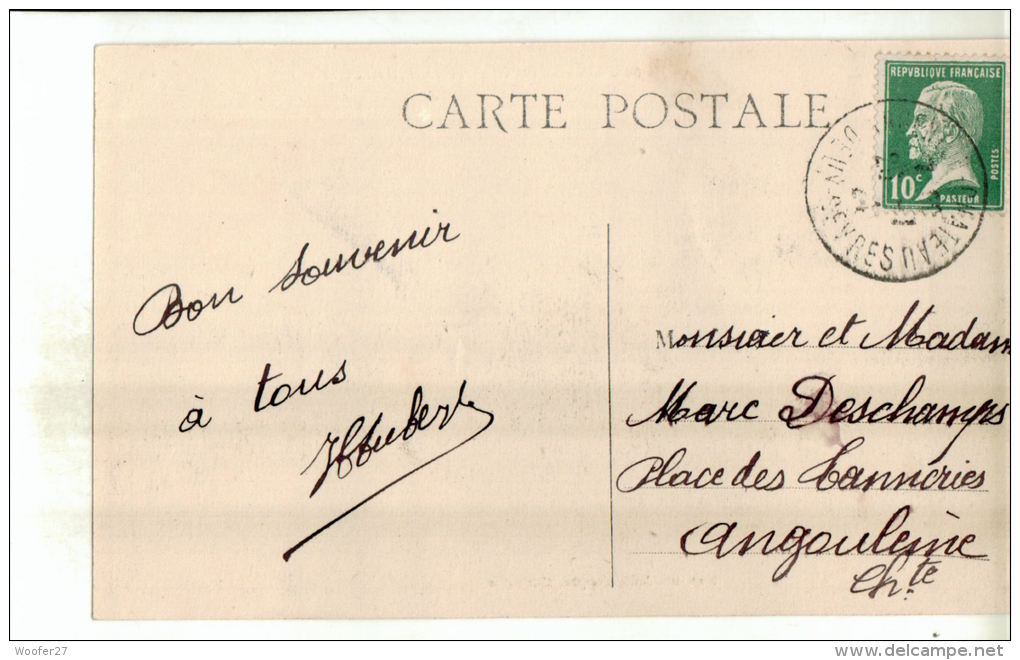 CARTE POSTALE
REPVBLIQVE FRANÇAISE
10c
POSTES
PASTEUR
CHATEAU
Bon souvenir
à tous
Hubert
Monsieur et Madam
Marc Deschamps
Place des Tanneries
Angoulême
Ch.te
Woofer27
www.delcampe.net